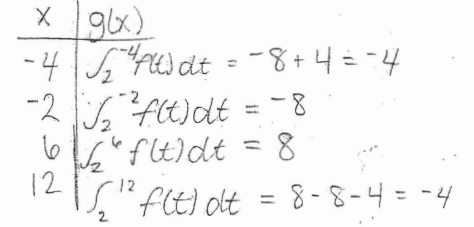 x g(x)
-4 ∫₂⁻⁴ f(t) dt = -8 + 4 = -4
-2 ∫₂⁻² f(t) dt = -8
6 ∫₂⁶ f(t) dt = 8
12 ∫₂¹² f(t) dt = 8 - 8 - 4 = -4